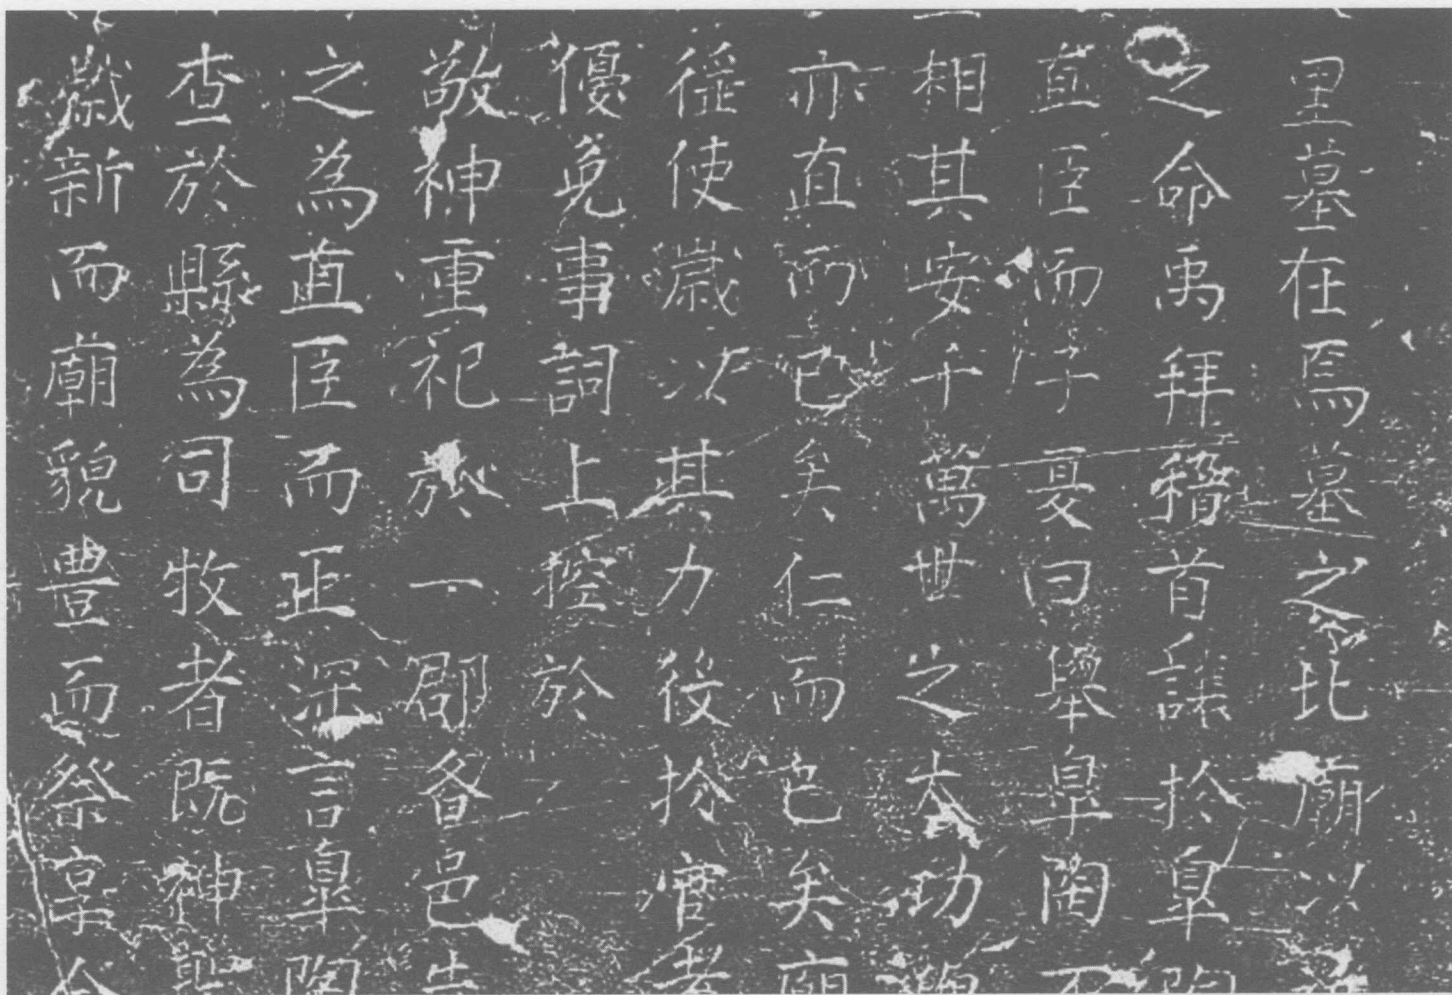 里墓在焉墓之北廟以
之命禹拜稽首讓於皐陶
直臣而子夏曰舉皐陶不
相其安千萬世之大功
亦直而已矣仁而已矣廟
徭使歲以其力役於官者
優免事詞上控於
敬神重祀於一郡各邑
之為直臣而正深言皐陶
查於縣為司牧者既神聖
歲新而廟貌豊而祭享今